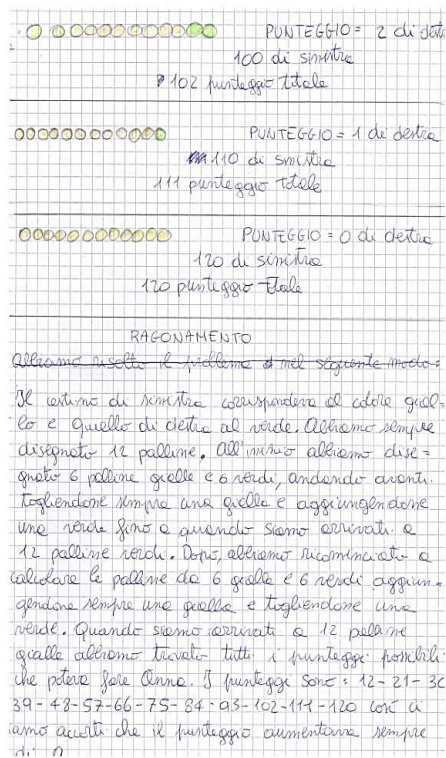 PUNTEGGIO = 2 di dest
100 di sinistra
102 punteggio totale
PUNTEGGIO = 1 di destra
110 di sinistra
111 punteggio totale
PUNTEGGIO = 0 di destra
120 di sinistra
120 punteggio totale
RAGIONAMENTO
Abbiamo risolto il problema nel seguente modo:
Il cestino di sinistra corrispondeva al colore gial-
lo e quello di destra al verde. Abbiamo sempre
disegnato 12 palline. All'inizio abbiamo dise=
gnato 6 palline gialle e 6 verdi, andando avanti
togliendone sempre una gialla e aggiungendone
una verde fino a quando siamo arrivati a
12 palline verdi. Dopo, abbiamo ricominciato a
calcolare le palline da 6 gialle e 6 verdi aggiun=
gendone sempre una gialla e togliendone una
verde. Quando siamo arrivati a 12 palline
gialle abbiamo trovato tutti i punteggi possibili
che poteva fare Anna. I punteggi sono: 12-21-30
39-48-57-66-75-84-93-102-111-120 così ci
amo accorti che il punteggio aumentava sempre
di 9